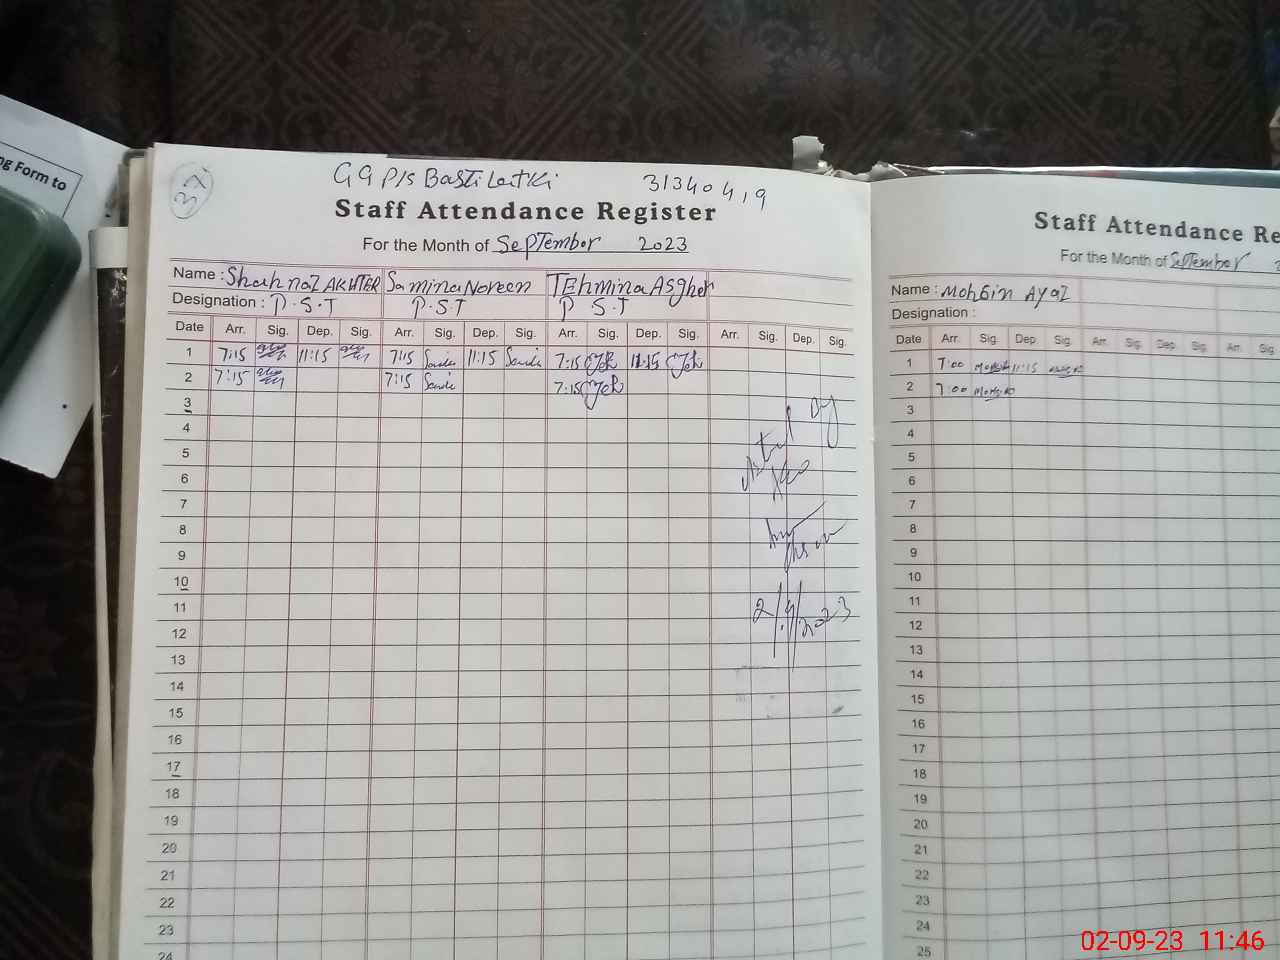 ng Form to
32
GGP/S Basti Latki 31340419
Staff Attendance Register
For the Month of September 2023
Name : Shah naz AKHTER Samina Noreen TEhmina Asgher
Designation : P.S.T P.S.T P S.T
Date Arr. Sig. Dep. Sig. Arr. Sig. Dep. Sig. Arr. Sig. Dep. Sig. Arr. Sig. Dep. Sig.
1 7:15 11:15 7:15 11:15 7:15 11:15
2 7:15 7:15 7:15
3
4
5
6
7
8
9
10
11
12
13
14
15
16
17
18
19
20
21
22
23
24
2/9/2023
Staff Attendance Re
For the Month of September 2
Name : Mohsin Ayaz
Designation :
Date Arr. Sig. Dep. Sig. Arr. Sig. Dep. Sig. Arr. Sig.
1 7:00 Mohsin 11:15 Mohsin
2 7:00 Mohsin
3
4
5
6
7
8
9
10
11
12
13
14
15
16
17
18
19
20
21
22
23
24
25
02-09-23 11:46